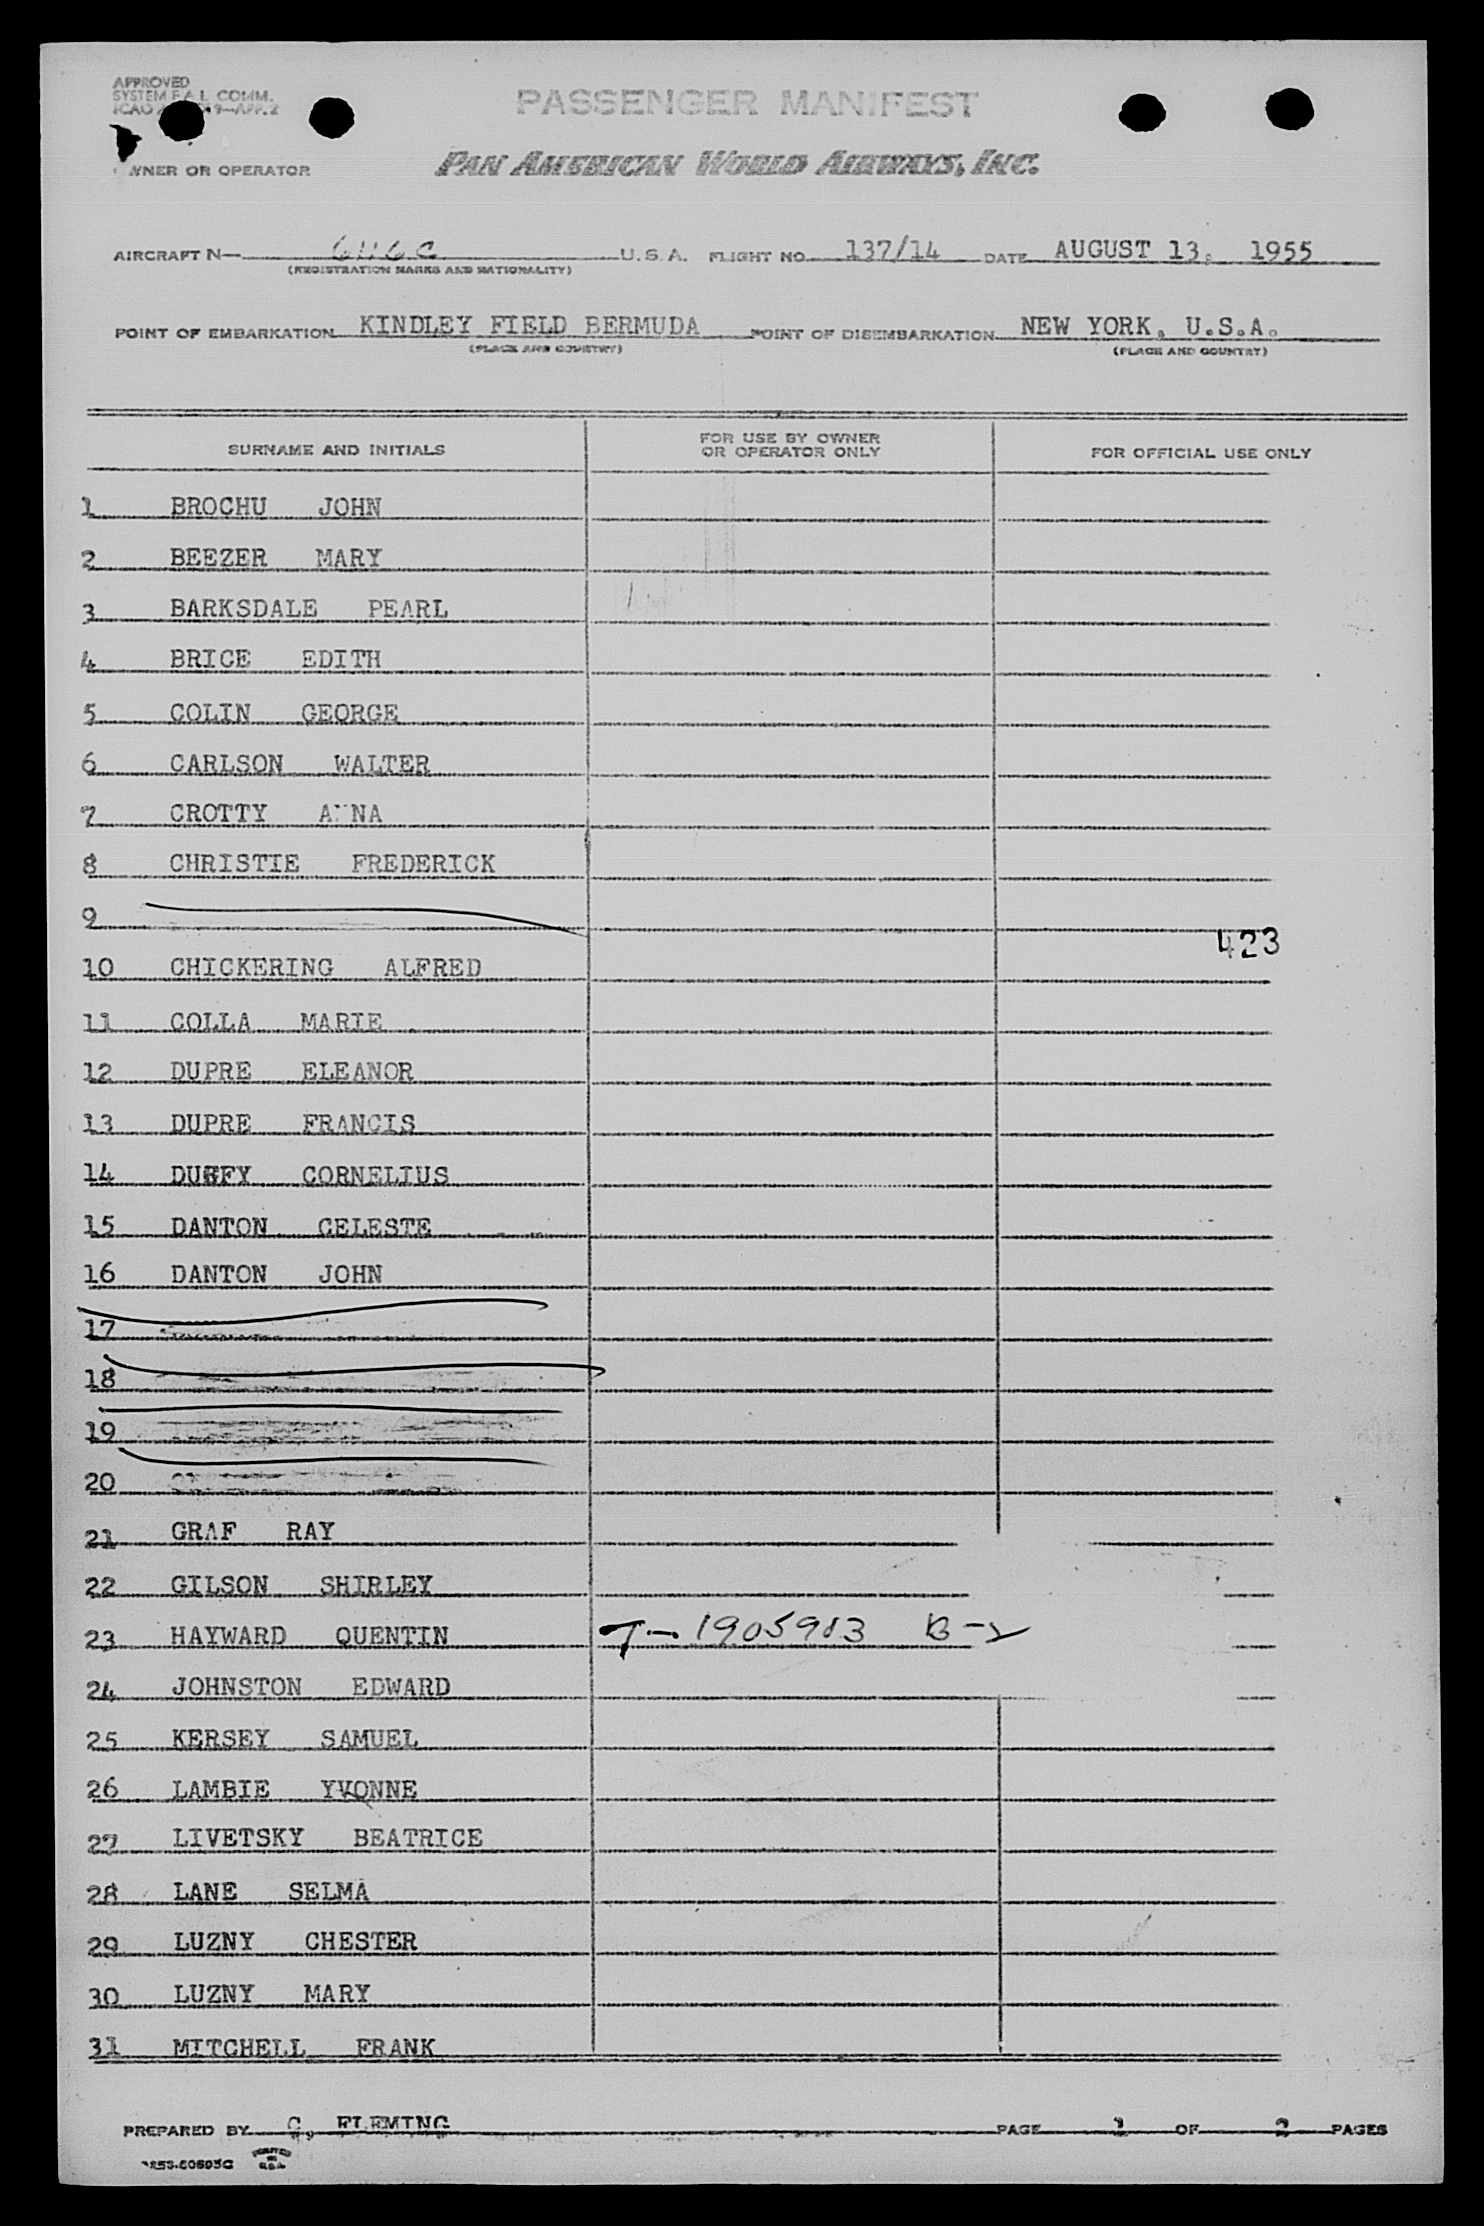 APPROVED
SYSTEM F.A.L. COMM.
PASSENGER MANIFEST
OWNER OR OPERATOR PAN AMERICAN WORLD AIRWAYS, INC.
AIRCRAFT N— U.S.A. FLIGHT NO. 137/14 DATE AUGUST 13, 1955
(REGISTRATION MARKS AND NATIONALITY)
POINT OF EMBARKATION KINDLEY FIELD BERMUDA POINT OF DISEMBARKATION NEW YORK, U.S.A.
(PLACE AND COUNTRY) (PLACE AND COUNTRY)
SURNAME AND INITIALS FOR USE BY OWNER OR OPERATOR ONLY FOR OFFICIAL USE ONLY
1 BROCHU JOHN
2 BEEZER MARY
3 BARKSDALE PEARL
4 BRICE EDITH
5 COLIN GEORGE
6 CARLSON WALTER
7 CROTTY ANNA
8 CHRISTIE FREDERICK
9
423
10 CHICKERING ALFRED
11 COLLA MARIE
12 DUPRE ELEANOR
13 DUPRE FRANCIS
14 DUFFY CORNELIUS
15 DANTON CELESTE
16 DANTON JOHN
17
18
19
20
21 GRAF RAY
22 GILSON SHIRLEY
23 HAYWARD QUENTIN T-1905913 B-2
24 JOHNSTON EDWARD
25 KERSEY SAMUEL
26 LAMBIE YVONNE
27 LIVETSKY BEATRICE
28 LANE SELMA
29 LUZNY CHESTER
30 LUZNY MARY
31 MITCHELL FRANK
PREPARED BY C. FLEMING PAGE 1 OF 2 PAGES
PRINTED IN U.S.A.